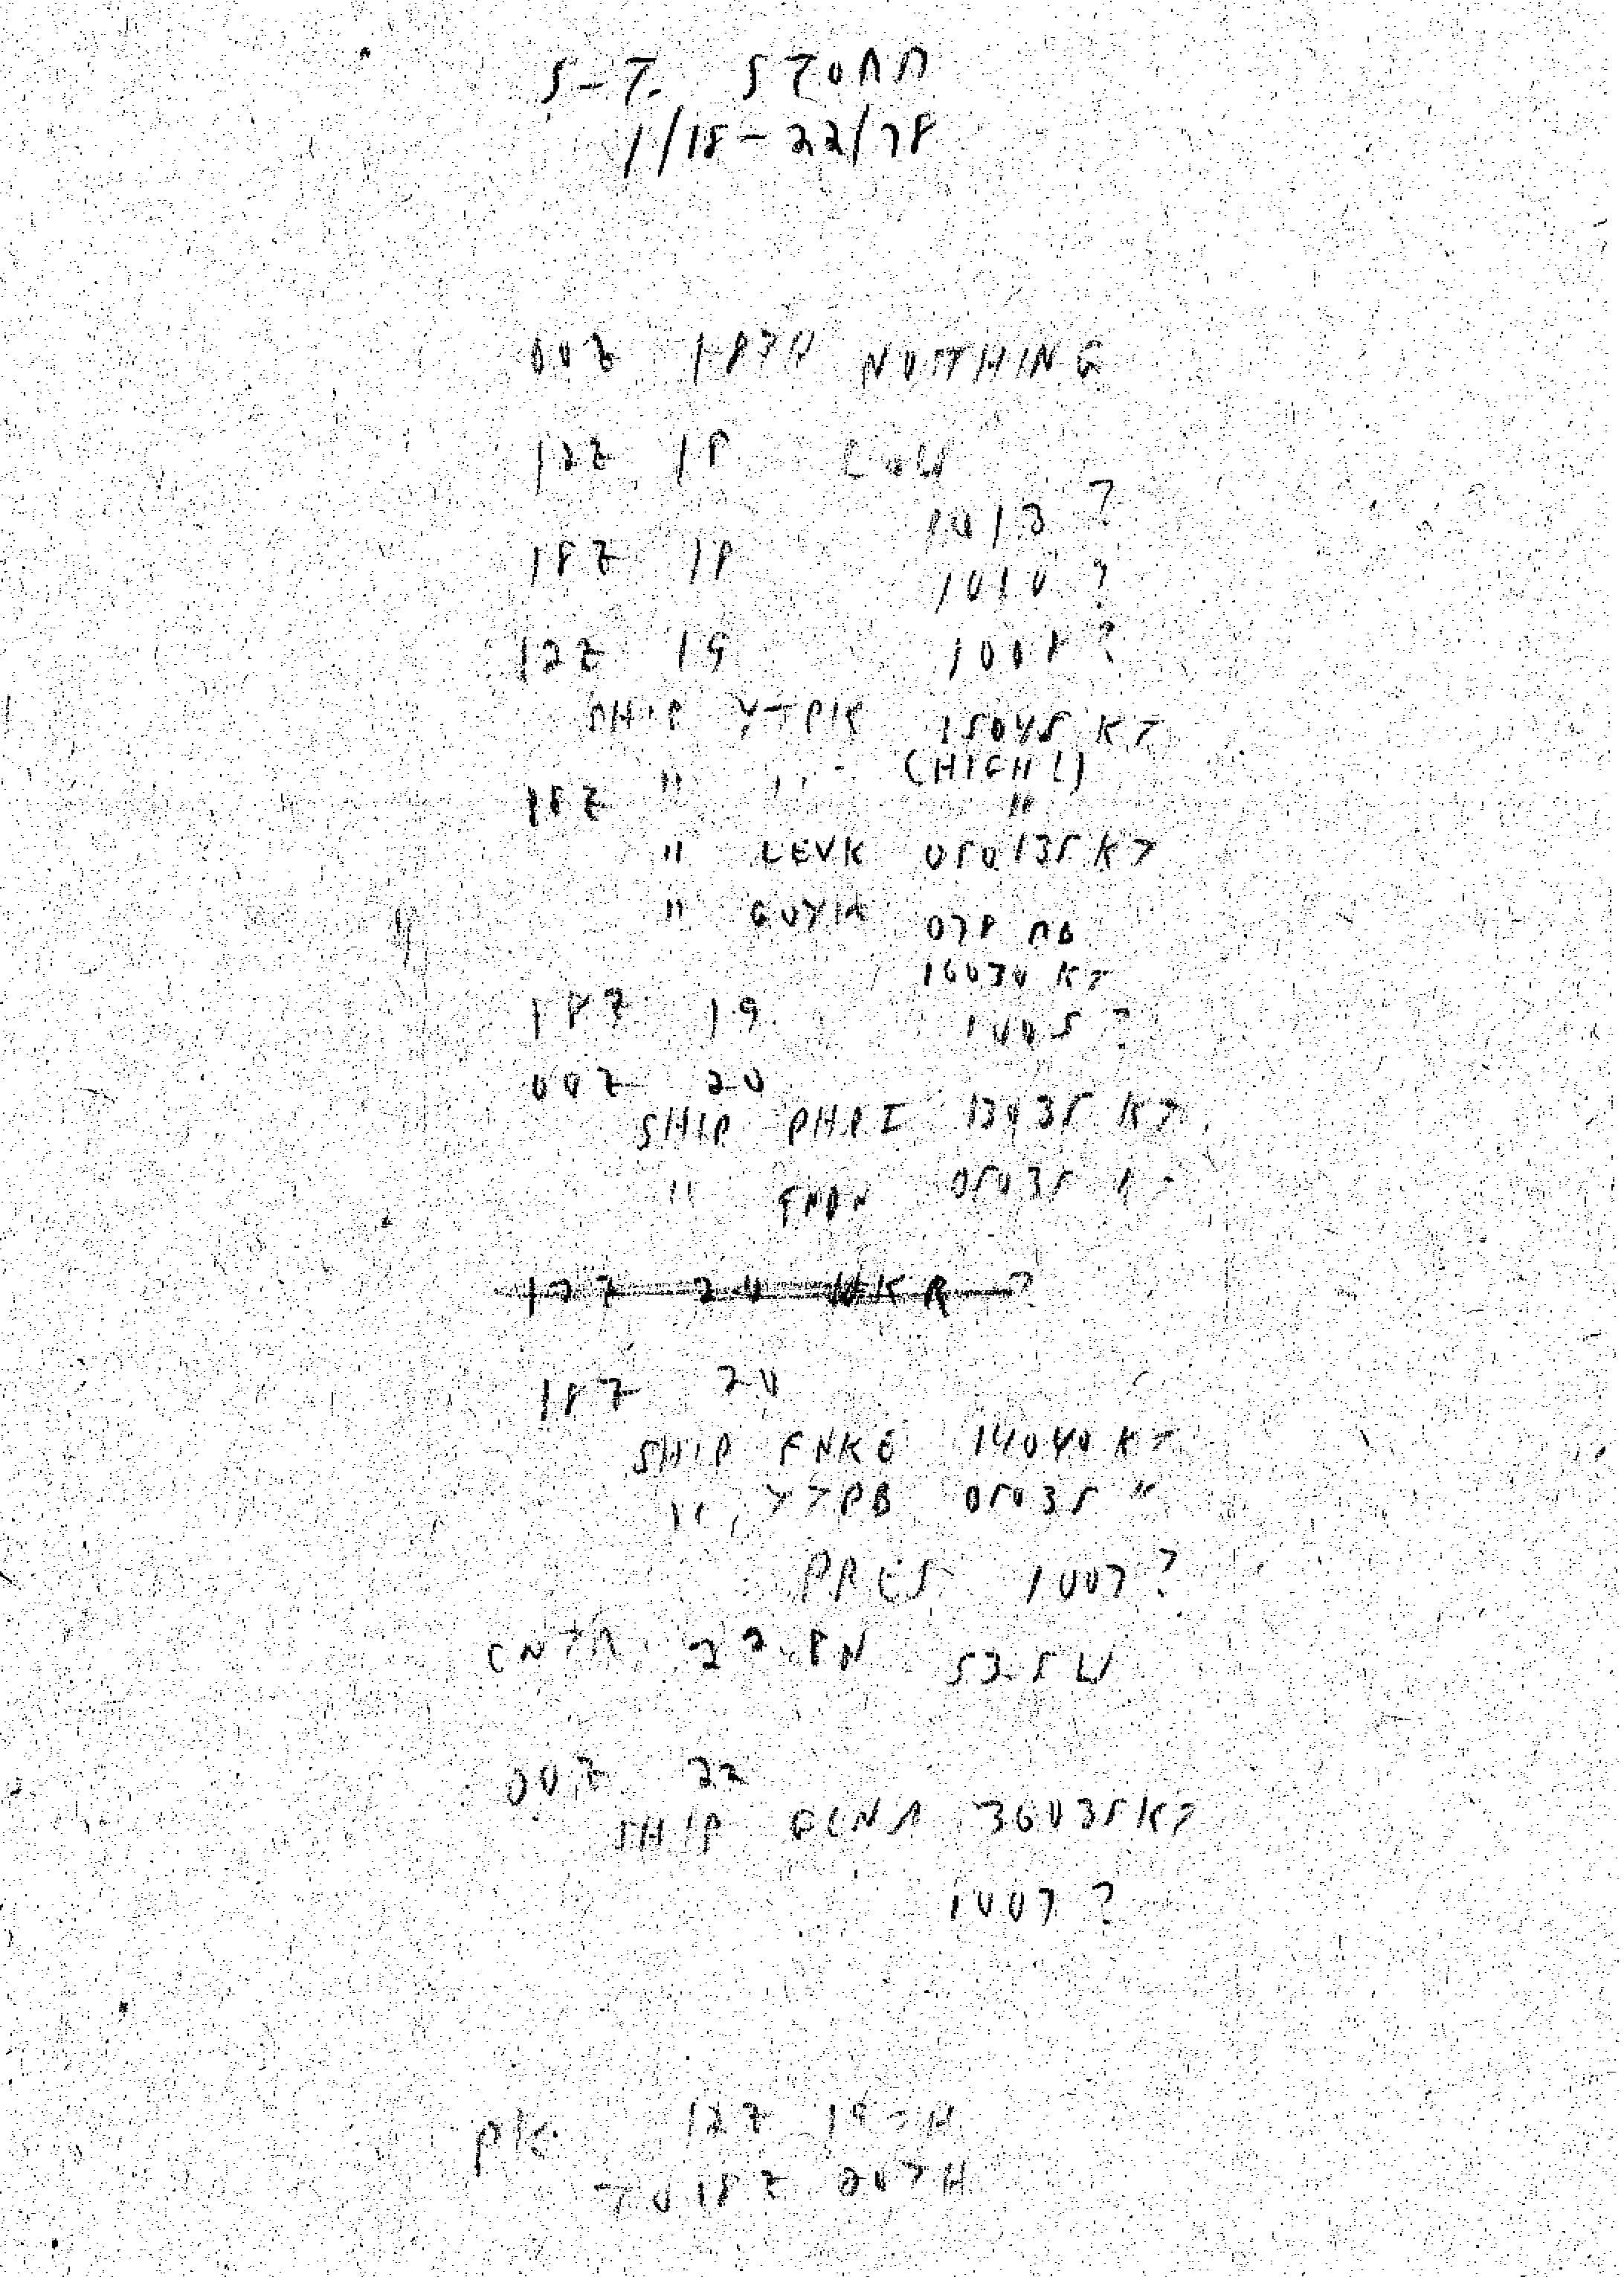 S-T. STORM
1/18-22/78
00Z 18TH NOTHING
12Z 18 LOW
1013 ?
18Z 18
1010 ?
12Z 19 1008 ?
SHIP YTPK 15045 KT
" " (HIGH L)
18Z "
" LEVK 050135 KT
" GUYA 078 MB
16030 KT
18Z 19 1005 ?
00Z 20
SHIP PHPI 13035 KT
" FNDN 05035 KT
12Z 20 WKR ?
18Z 20
SHIP FNKE 14040 KT
" YTPB 05035 "
PRES 1007 ?
CNTR 22.8N 52.5W
00Z 22
SHIP GCNA 36035KT
1007 ?
PK 12Z 19TH
TO 18Z 20TH